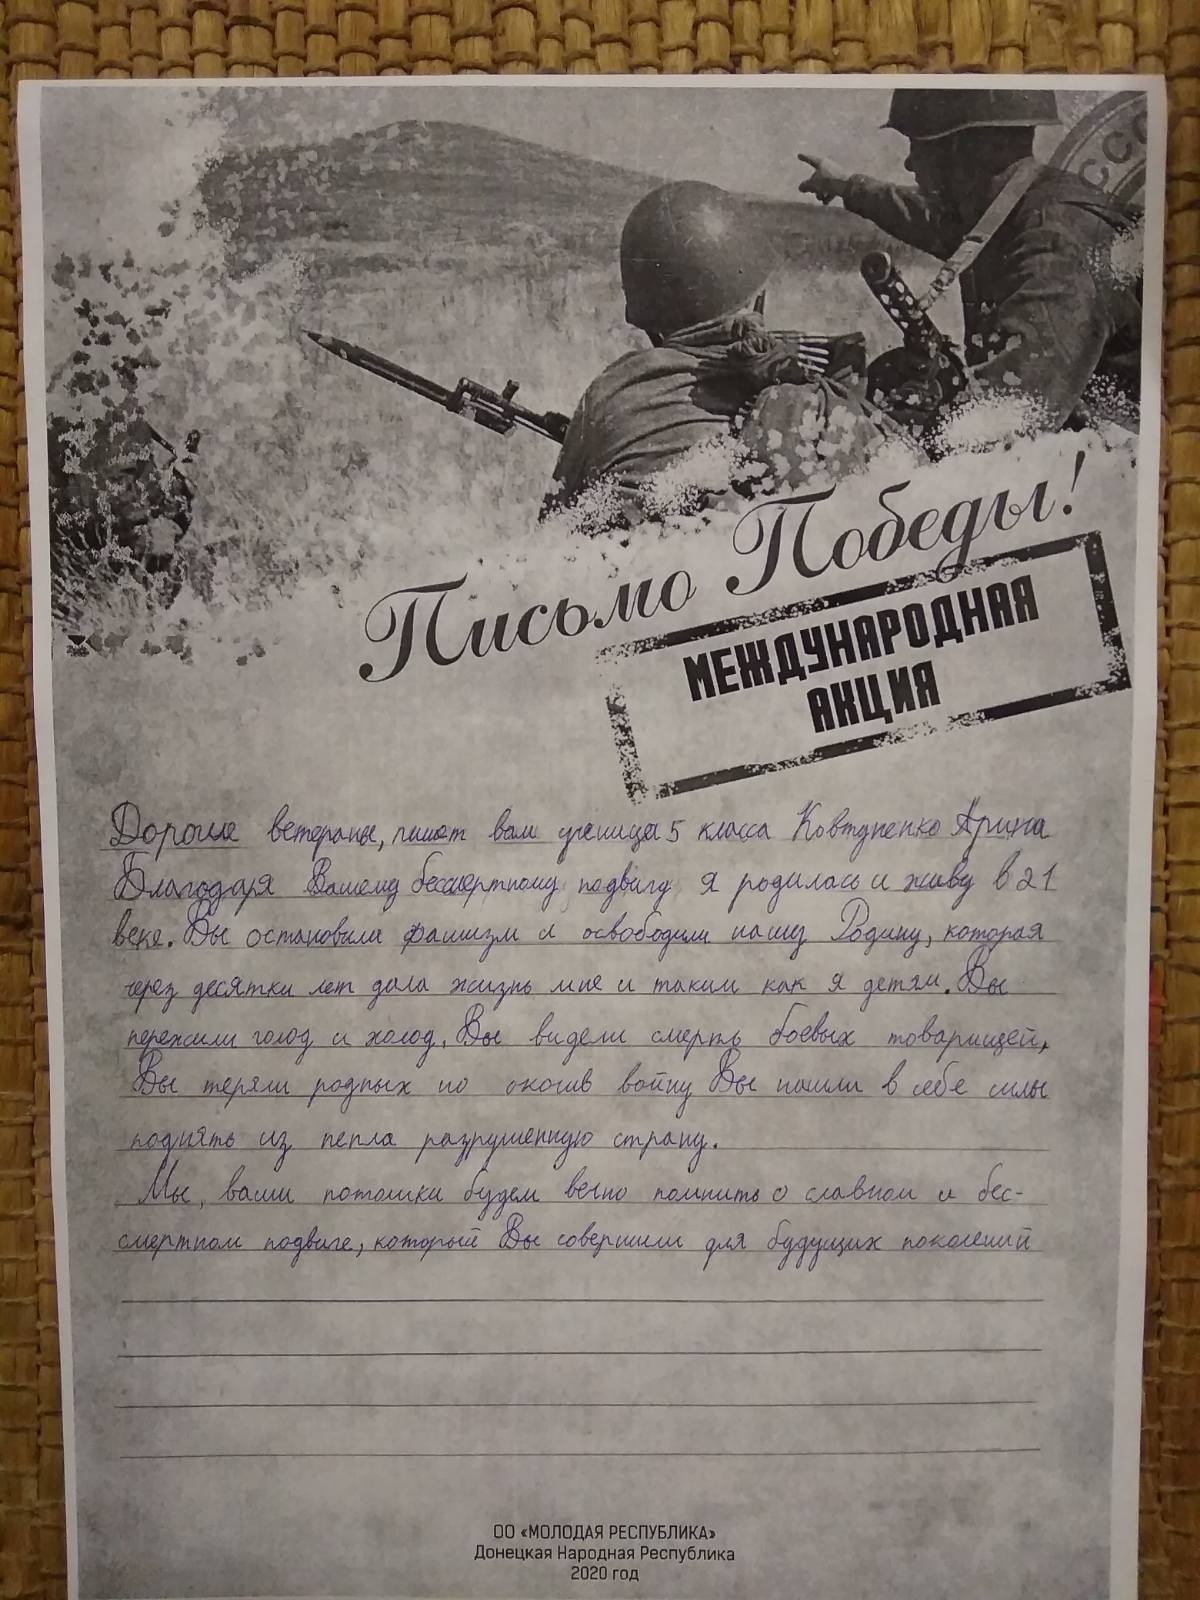 СССР
Письмо Победы!
МЕЖДУНАРОДНАЯ
АКЦИЯ
Дорогие ветераны, пишет вам ученица 5 класса Ковтуненко Арина
Благодаря Вашему бессмертному подвигу я родилась и живу в 21
веке. Вы остановили фашизм и освободили нашу Родину, которая
через десятки лет дала жизнь мне и таким как я детям. Вы
пережили голод и холод, Вы видели смерть боевых товарищей,
Вы теряли родных но окочив войну Вы нашли в себе силы
поднять из пепла разрушенную страну.
Мы, ваши потомки будем вечно помнить о славном и бес-
смертном подвиге, который Вы совершили для будущих поколений
ОО «МОЛОДАЯ РЕСПУБЛИКА»
Донецкая Народная Республика
2020 год